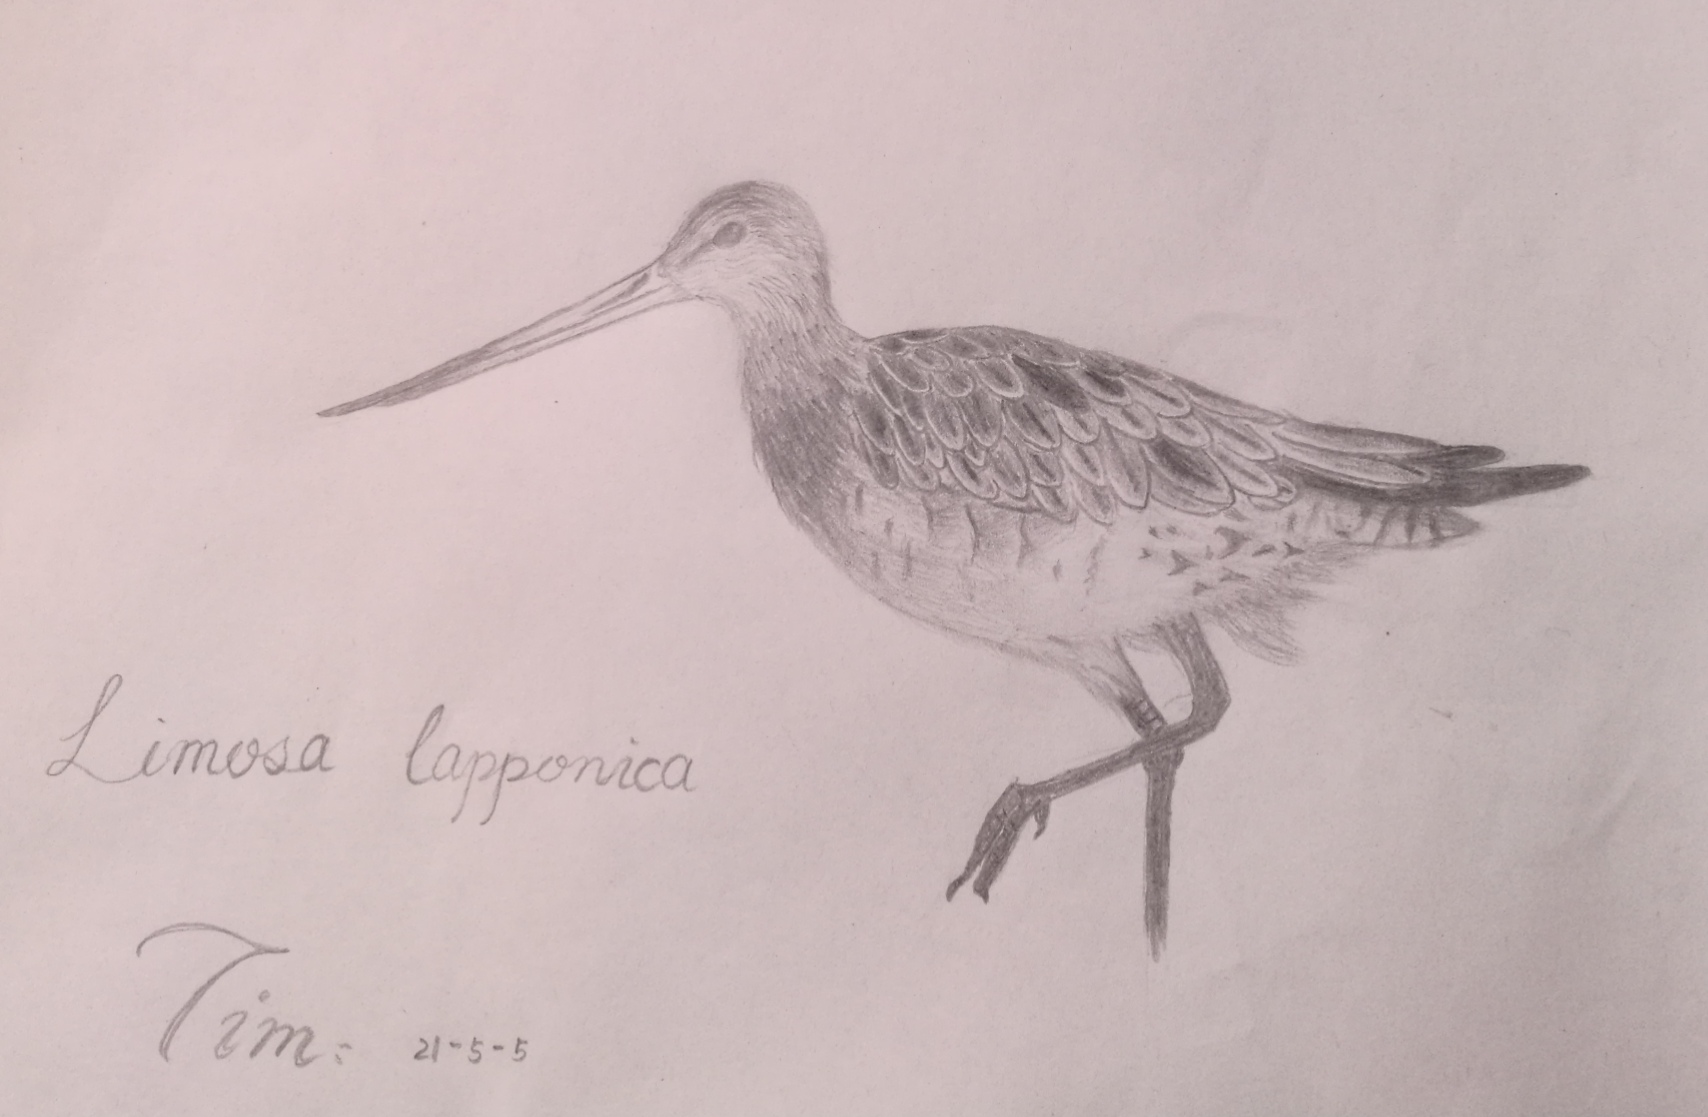 Limosa lapponica
Tim. 21-5-5